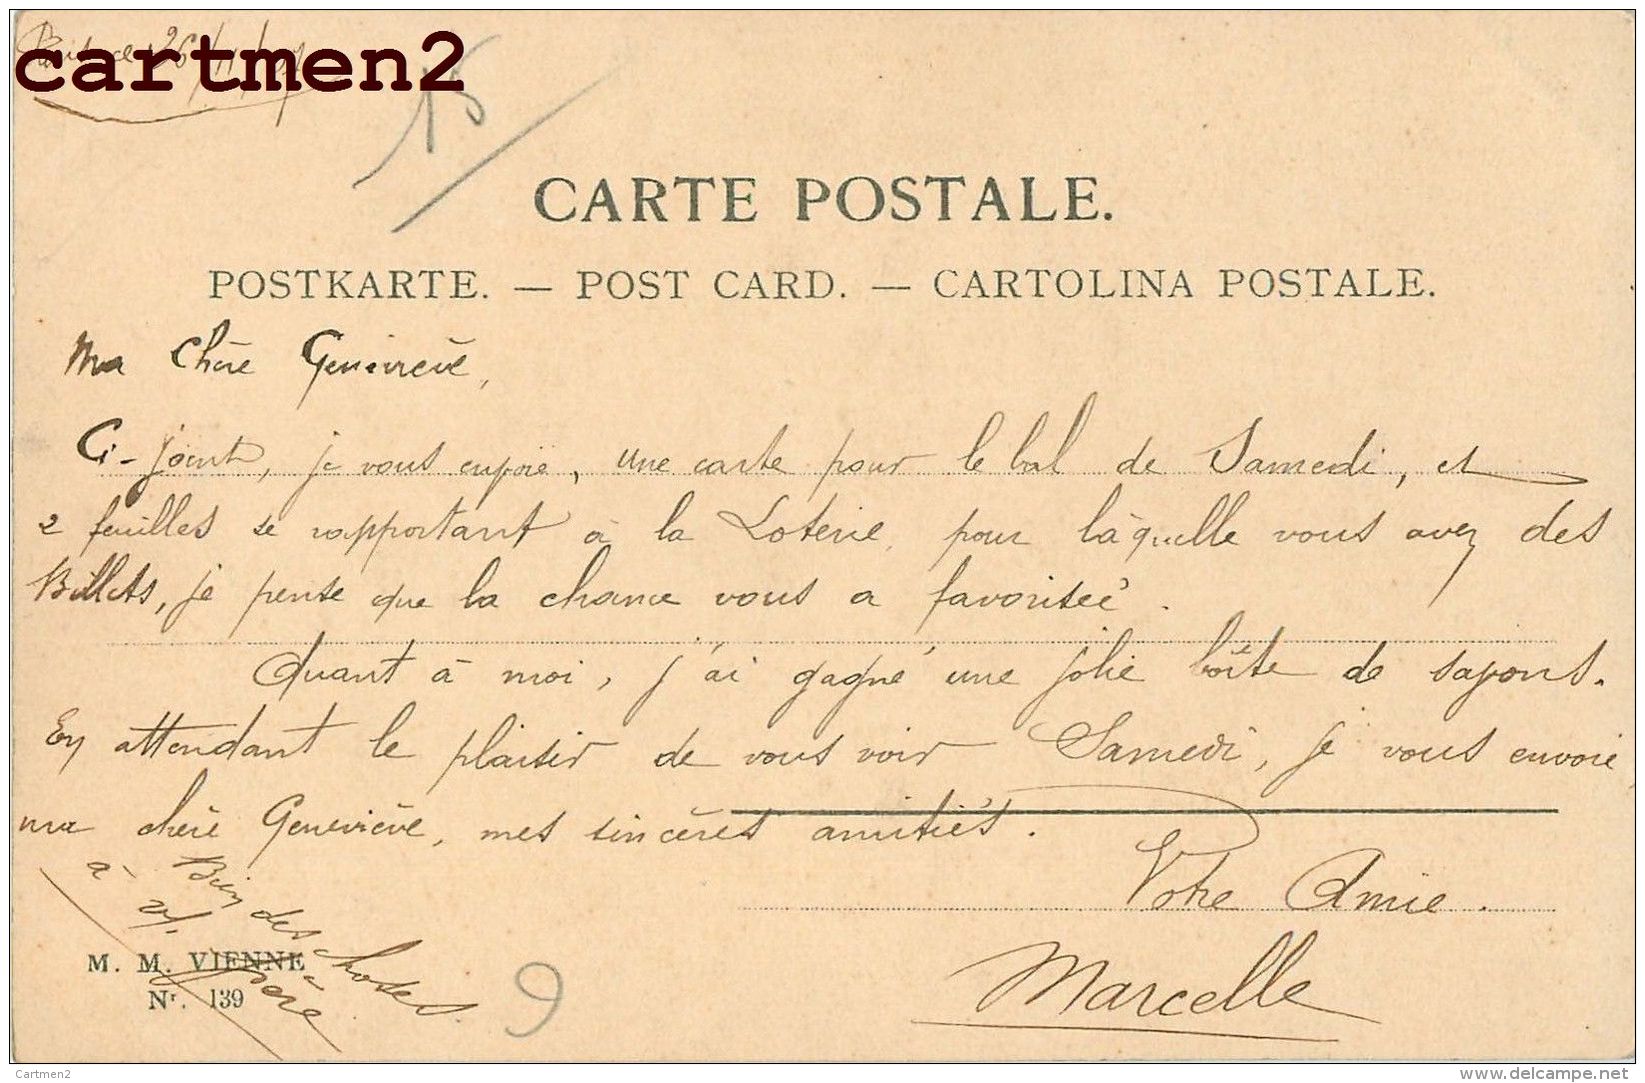 cartmen2
26/11/
15
CARTE POSTALE.
POSTKARTE. — POST CARD. — CARTOLINA POSTALE.
Ma Chère Geneviève,
Ci-joint, je vous envoie, une carte pour le bal de Samedi, et
2 feuilles se rapportant à la Loterie, pour làquelle vous avez des
Billets, je pense que la chance vous a favorisée.
Quant à moi, j'ai gagné une jolie boîte de savons.
En attendant le plaisir de vous voir Samedi, je vous envoie
ma chère Geneviève, mes sincères amitiés.
Votre Amie.
Marcelle
Bien des choses
à v/. mère
M. M. VIENNE
Nr. 139
9
Cartmen2
https://www.delcampe.net